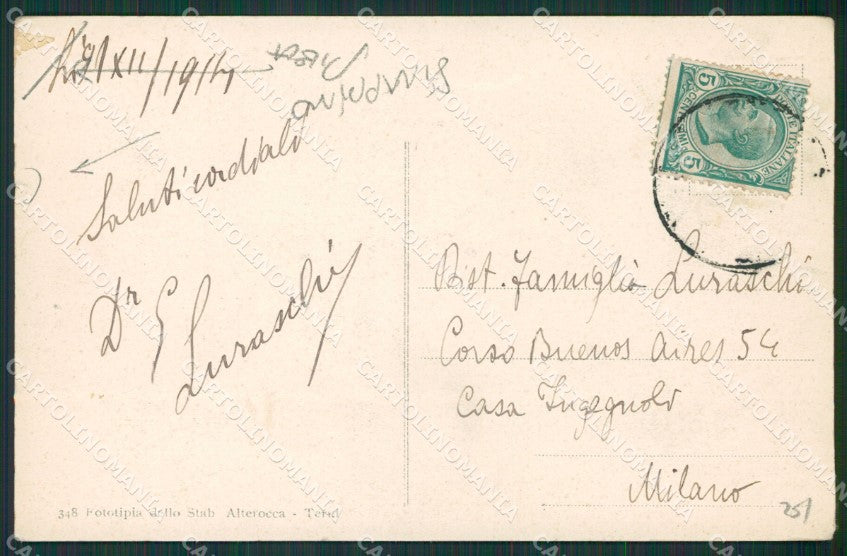 21/XII/1914
Saluti cordiali
Dr E Luraschi
Dist. Famiglia Luraschi
Corso Buenos Aires 54
Casa Ingegnoli
Milano
25/
348 Fototipia dello Stab Alterocca - Terni
POSTE ITALIANE
CENTESIMI
5
5
CARTOLINOMANIA